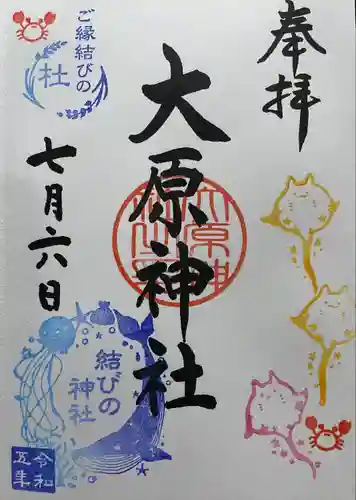 奉拝
大原神社
ご縁結びの
社
七月六日
結びの
神社
令和
五年